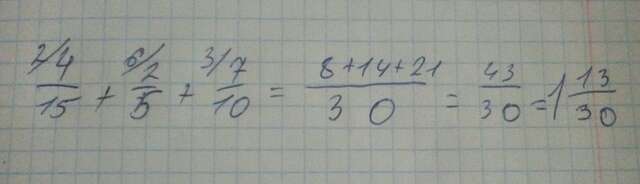 2/4/15 + 6/2/5 + 3/7/10 = 8+14+21/30 = 43/30 = 1 13/30